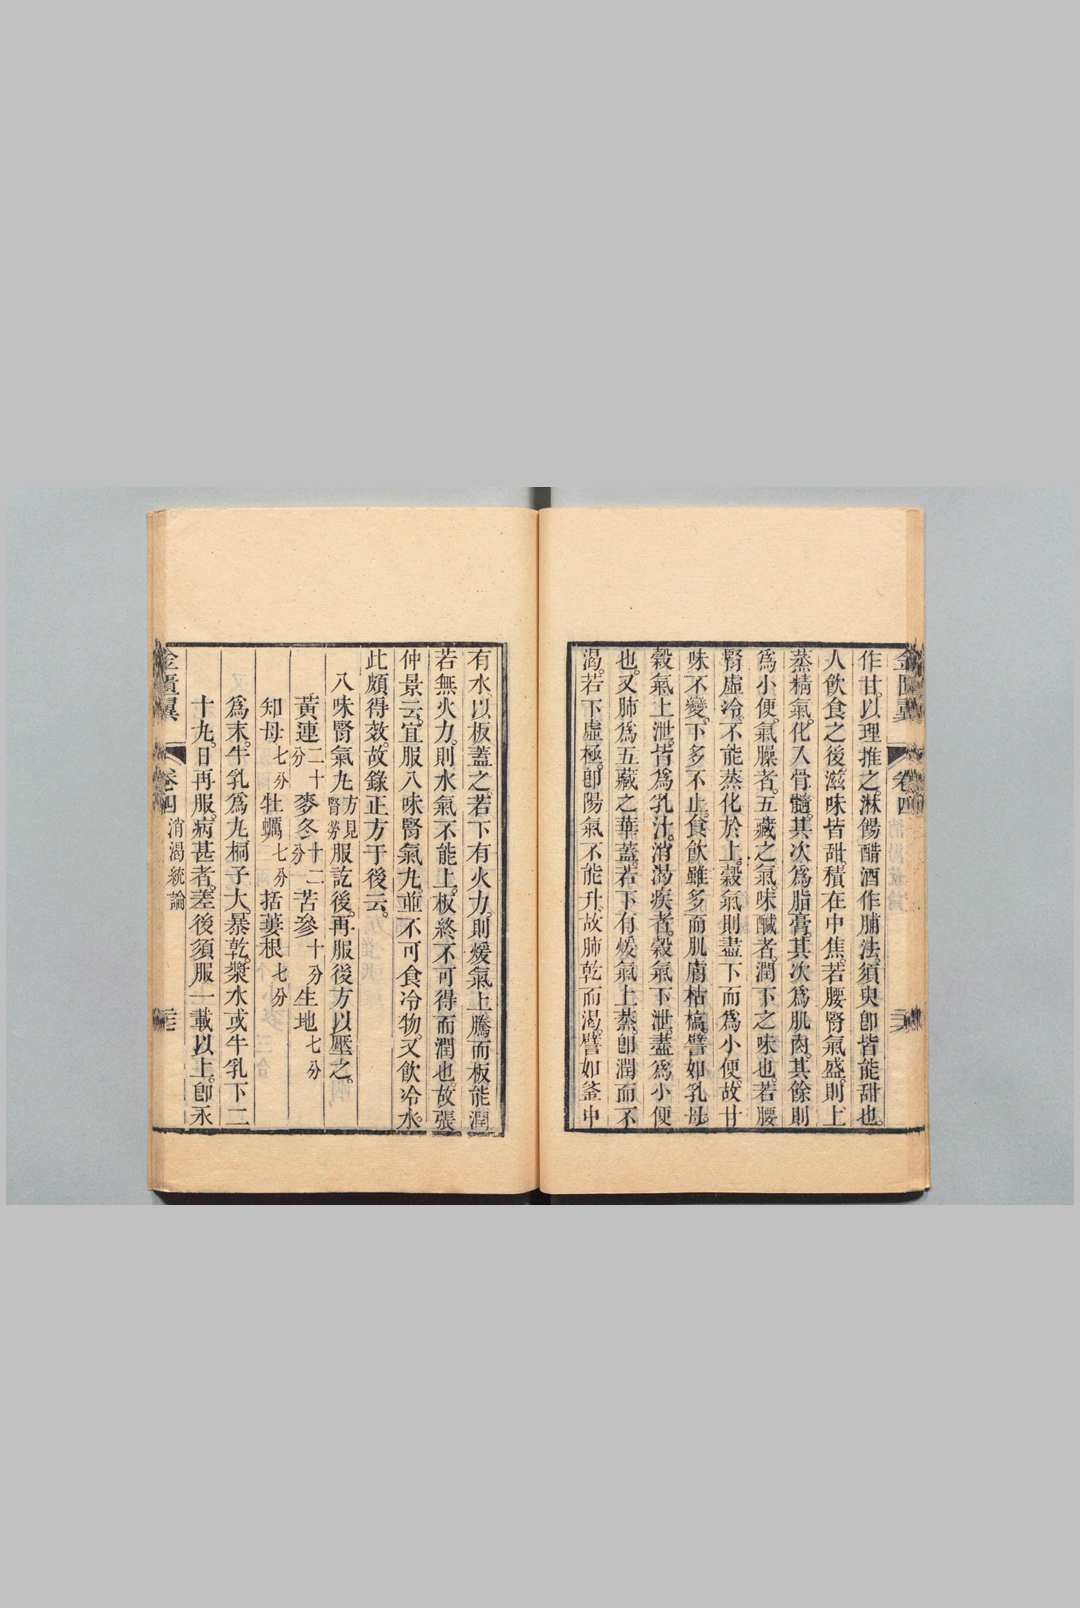 作甘。以理推之。淋餳醋酒作脯法。須臾卽皆能甜也。
人飲食之後。滋味皆甜。積在中焦。若腰腎氣盛。則上
蒸精氣。化入骨髓。其次爲脂膏。其次爲肌肉。其餘則
爲小便。氣臊者。五藏之氣。味鹹者。潤下之味也。若腰
腎虛冷。不能蒸化於上。穀氣則盡下而爲小便。故甘
味不變。下多不止。食飲雖多。而肌膚枯槁。譬如乳母。
穀氣上泄。皆爲乳汁。消渴疾者。穀氣下泄。盡爲小便
也。又肺爲五藏之華蓋。若下有煖氣上蒸。卽潤而不
渴。若下虛極。卽陽氣不能升。故肺乾而渴。譬如釜中
有水。以板蓋之。若下有火力。則煖氣上騰。而板能潤。
若無火力。則水氣不能上。板終不可得而潤也。故張
仲景云。宜服八味腎氣丸。並不可食冷物。又飲冷水
此頗得效。故錄正方于後云。
八味腎氣丸方見腎勞服訖後。再服後方以壓之。
黃連二十分 麥冬十二分 苦參十分 生地七分
知母七分 牡蠣七分 括蔞根七分
爲末。牛乳爲丸桐子大。暴乾。漿水或牛乳下二
十丸。日再服。病甚者。差後須服一載以上。卽永
金匱翼 卷四 消渴統論